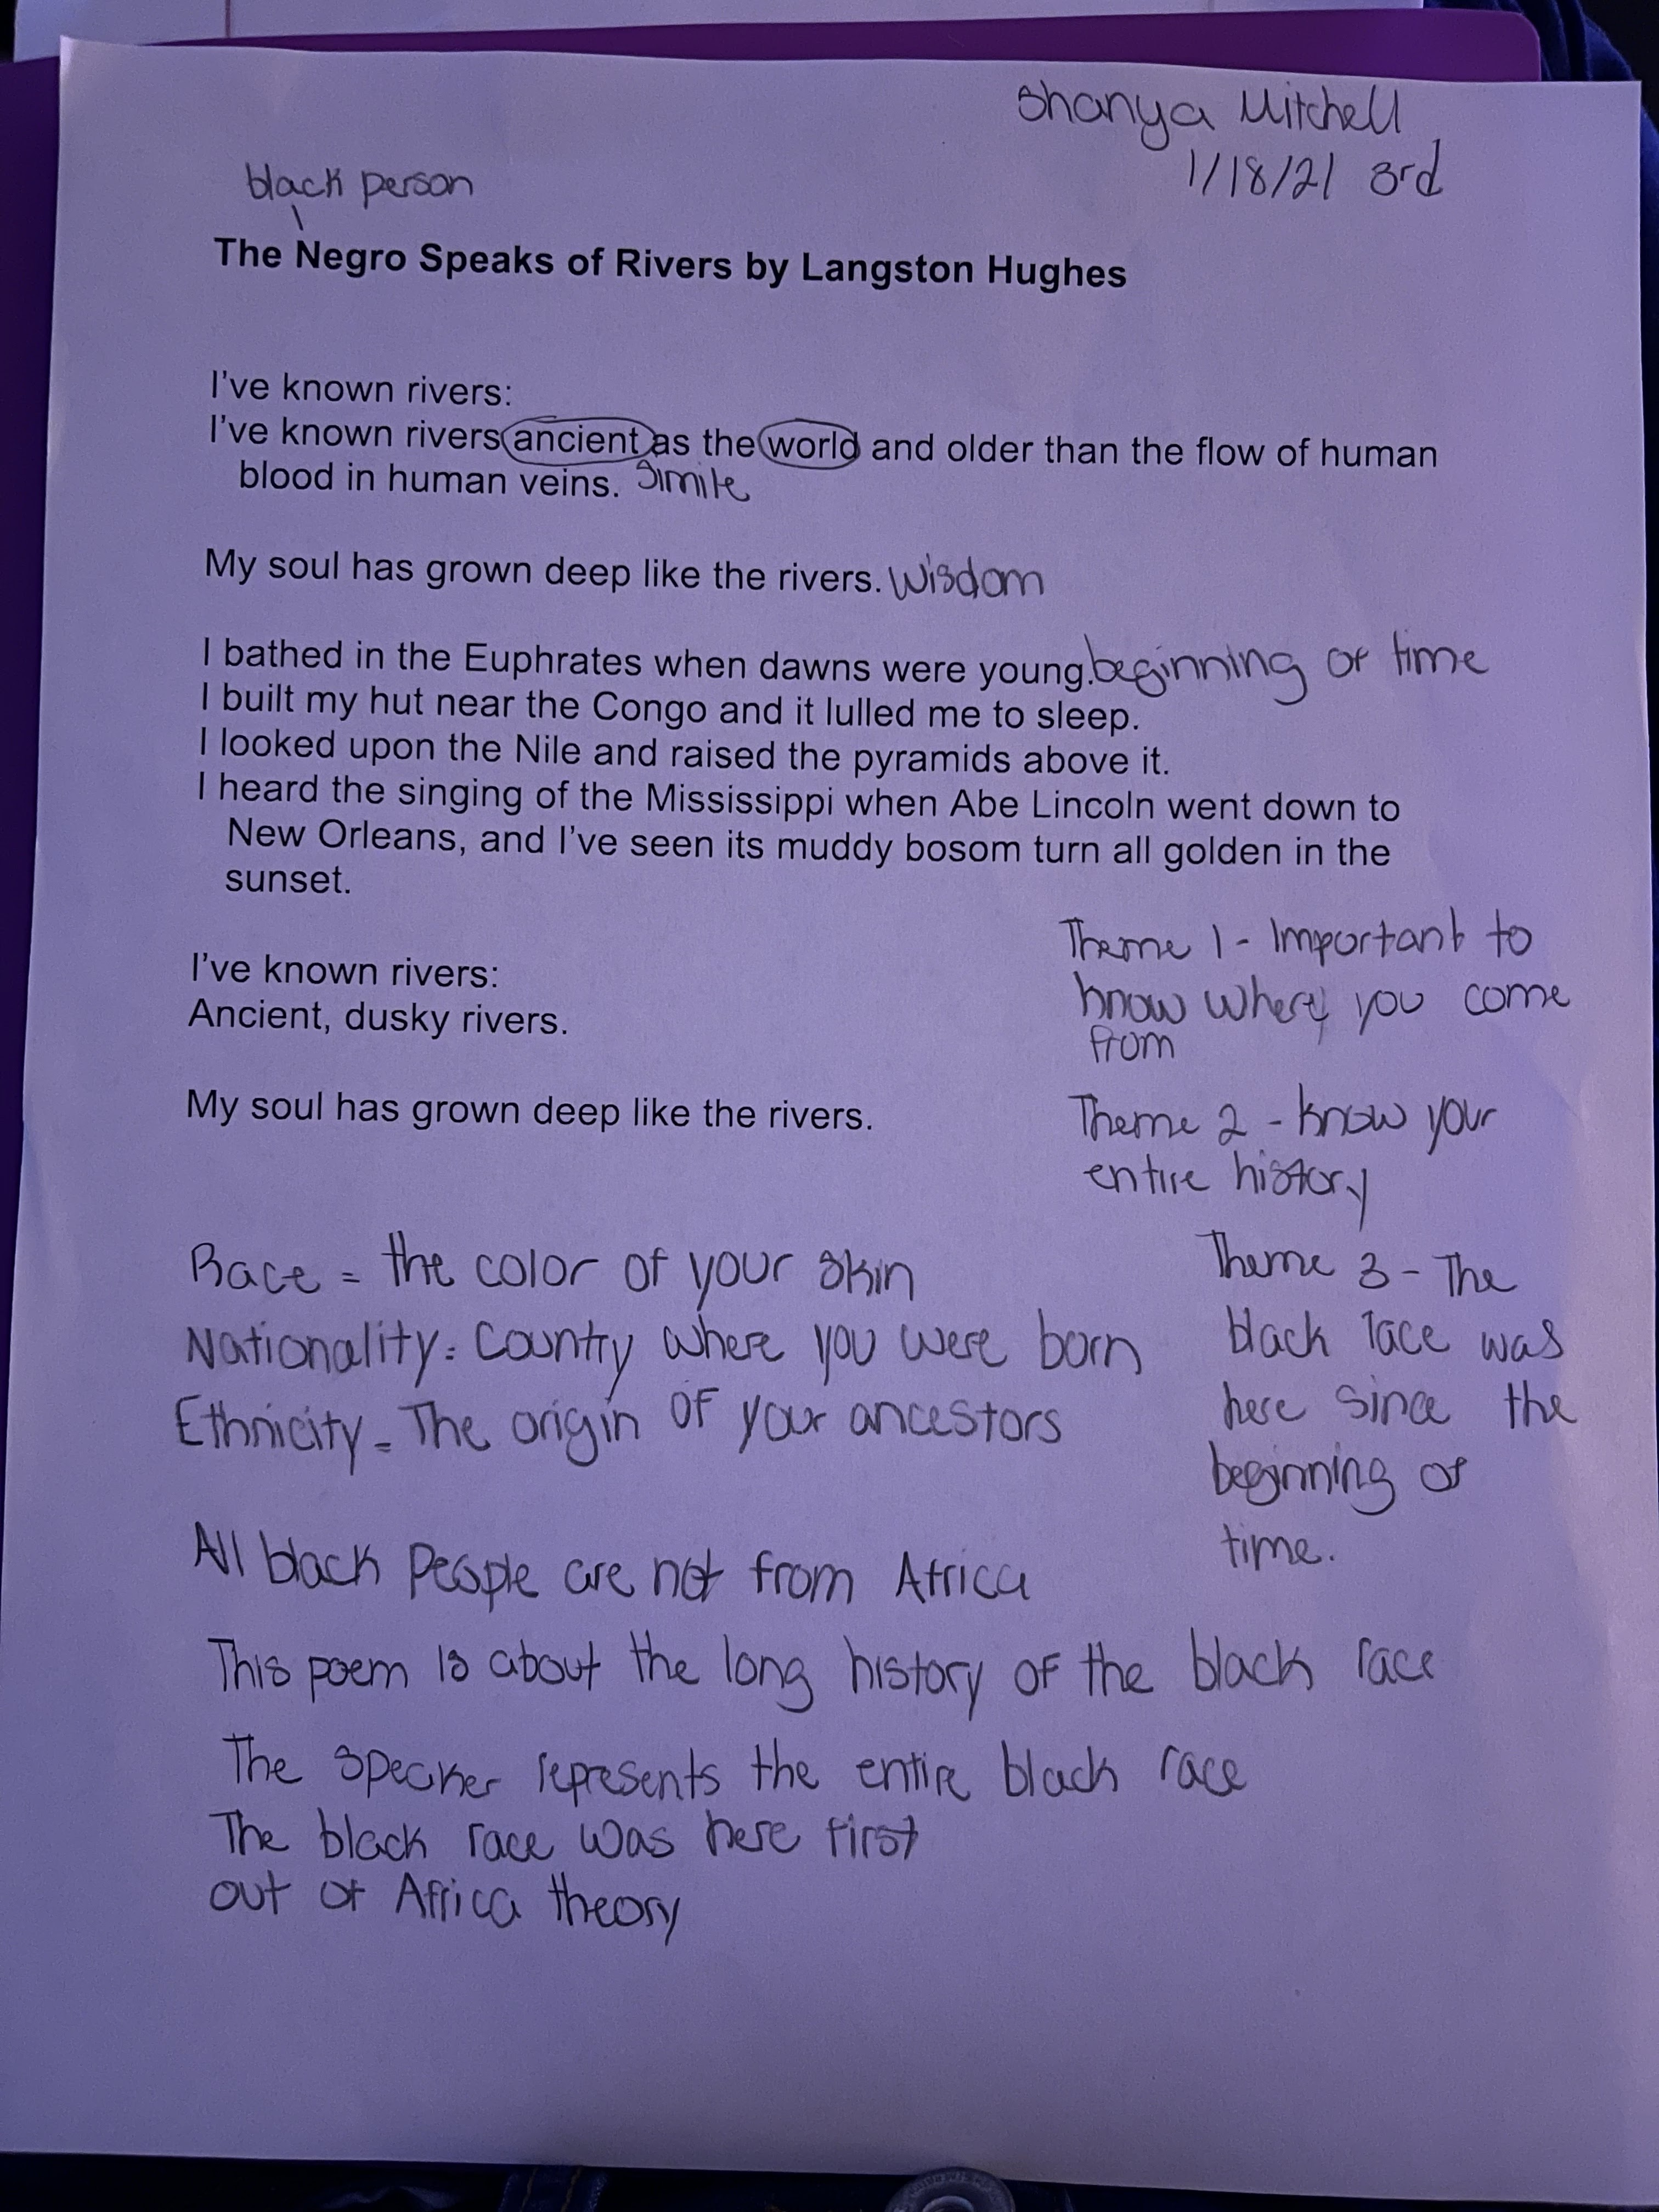 Shanya Mitchell
1/18/21 3rd
black person
The Negro Speaks of Rivers by Langston Hughes
I've known rivers:
I've known rivers ancient as the world and older than the flow of human
blood in human veins. Simile
My soul has grown deep like the rivers. Wisdom
I bathed in the Euphrates when dawns were young. beginning of time
I built my hut near the Congo and it lulled me to sleep.
I looked upon the Nile and raised the pyramids above it.
I heard the singing of the Mississippi when Abe Lincoln went down to
New Orleans, and I've seen its muddy bosom turn all golden in the
sunset.
I've known rivers:
Ancient, dusky rivers.
My soul has grown deep like the rivers.
Theme 1 - Important to
know where you come
from
Theme 2 - Know your
entire history
Theme 3 - The
black race was
here since the
beginning of
time.
Race = the color of your skin
Nationality = Country where you were born
Ethnicity = The origin of your ancestors
All black People are not from Africa
This poem is about the long history of the black race
The Speaker represents the entire black race
The black race was here first
out of Africa theory